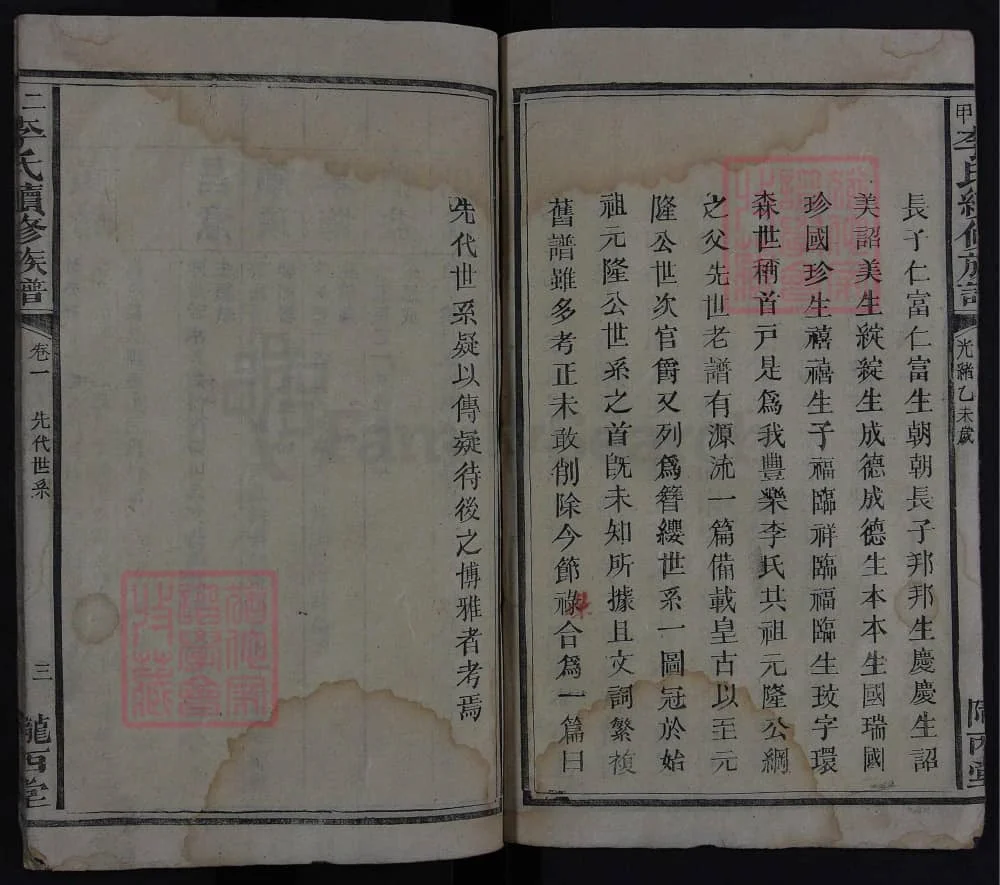 甲
李氏續修族譜
光緒乙未歲
隴西堂
長子仁富仁富生朝朝長子邦邦生慶慶生詔
美詔美生綻綻生成德成德生本本生國瑞國
珍國珍生禧禧生子福臨祥臨福臨生玟字環
森世稱首戸是爲我豐樂李氏共祖元隆公綱
之父先世老譜有源流一篇備載皇古以至元
隆公世次官爵又列爲簪纓世系一圖冠於始
祖元隆公世系之首旣未知所據且文詞繁複
舊譜雖多考正未敢削除今節祿合爲一篇曰
先代世系疑以傳疑待後之博雅者考焉
二李氏續修族譜
卷一
先代世系
三
隴西堂